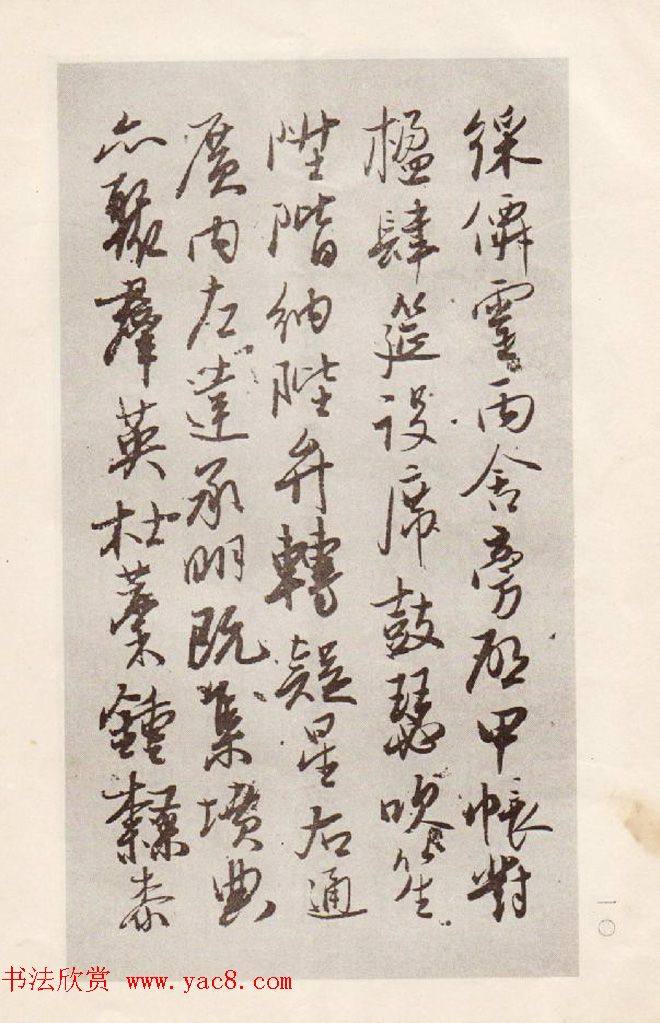 綵僊靈丙舍旁启甲帳對
楹肆筵設席鼓瑟吹笙
陞階納陛弁轉疑星右通
廣内左達承明既集墳典
亦聚羣英杜藁鍾隸桼
一〇
书法欣赏 www.yac8.com